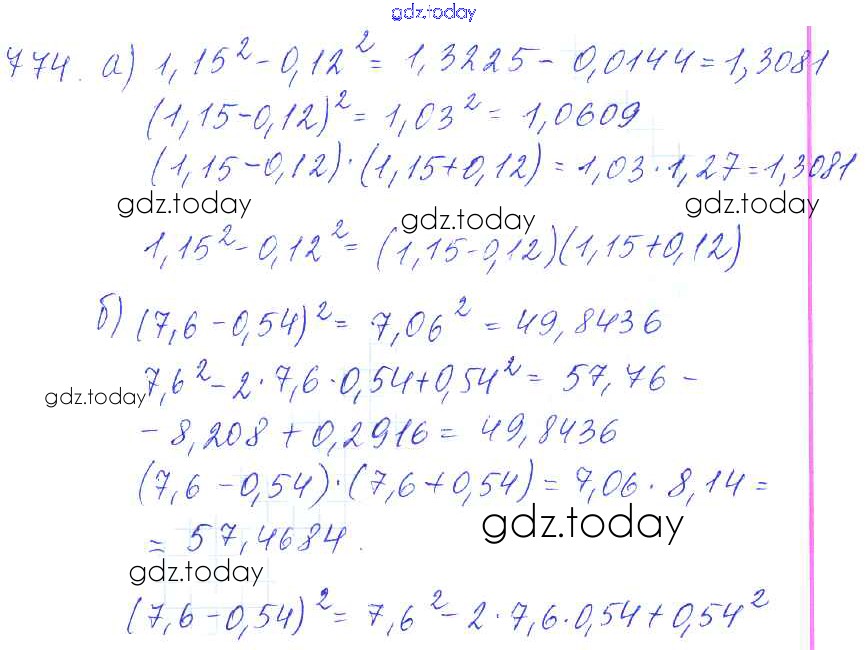 gdz.today
774. а) 1,15² - 0,12² = 1,3225 - 0,0144 = 1,3081
(1,15-0,12)² = 1,03² = 1,0609
(1,15-0,12)·(1,15+0,12) = 1,03·1,27 = 1,3081
gdz.today gdz.today gdz.today
1,15² - 0,12² = (1,15-0,12)(1,15+0,12)
б) (7,6-0,54)² = 7,06² = 49,8436
7,6² - 2·7,6·0,54+0,54² = 57,76 -
gdz.today
- 8,208 + 0,2916 = 49,8436
(7,6-0,54)·(7,6+0,54) = 7,06·8,14 =
gdz.today
= 57,4684.
gdz.today
(7,6-0,54)² = 7,6² - 2·7,6·0,54+0,54²